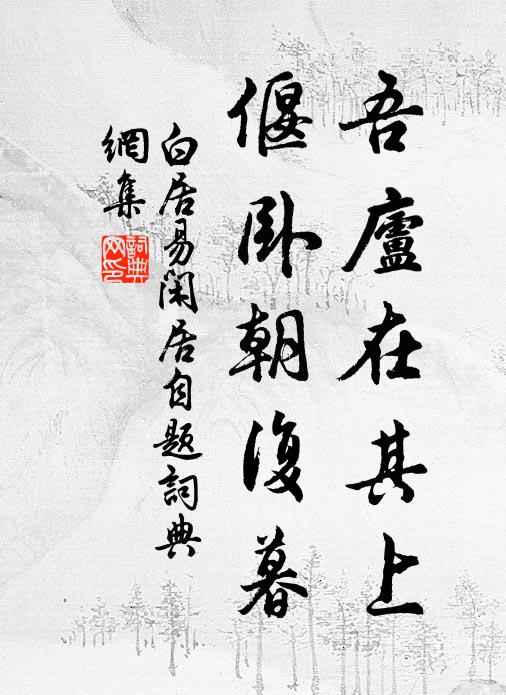 吾廬在其上
偃卧朝復暮
白居易閑居自題詞典
網集
詞典
网印